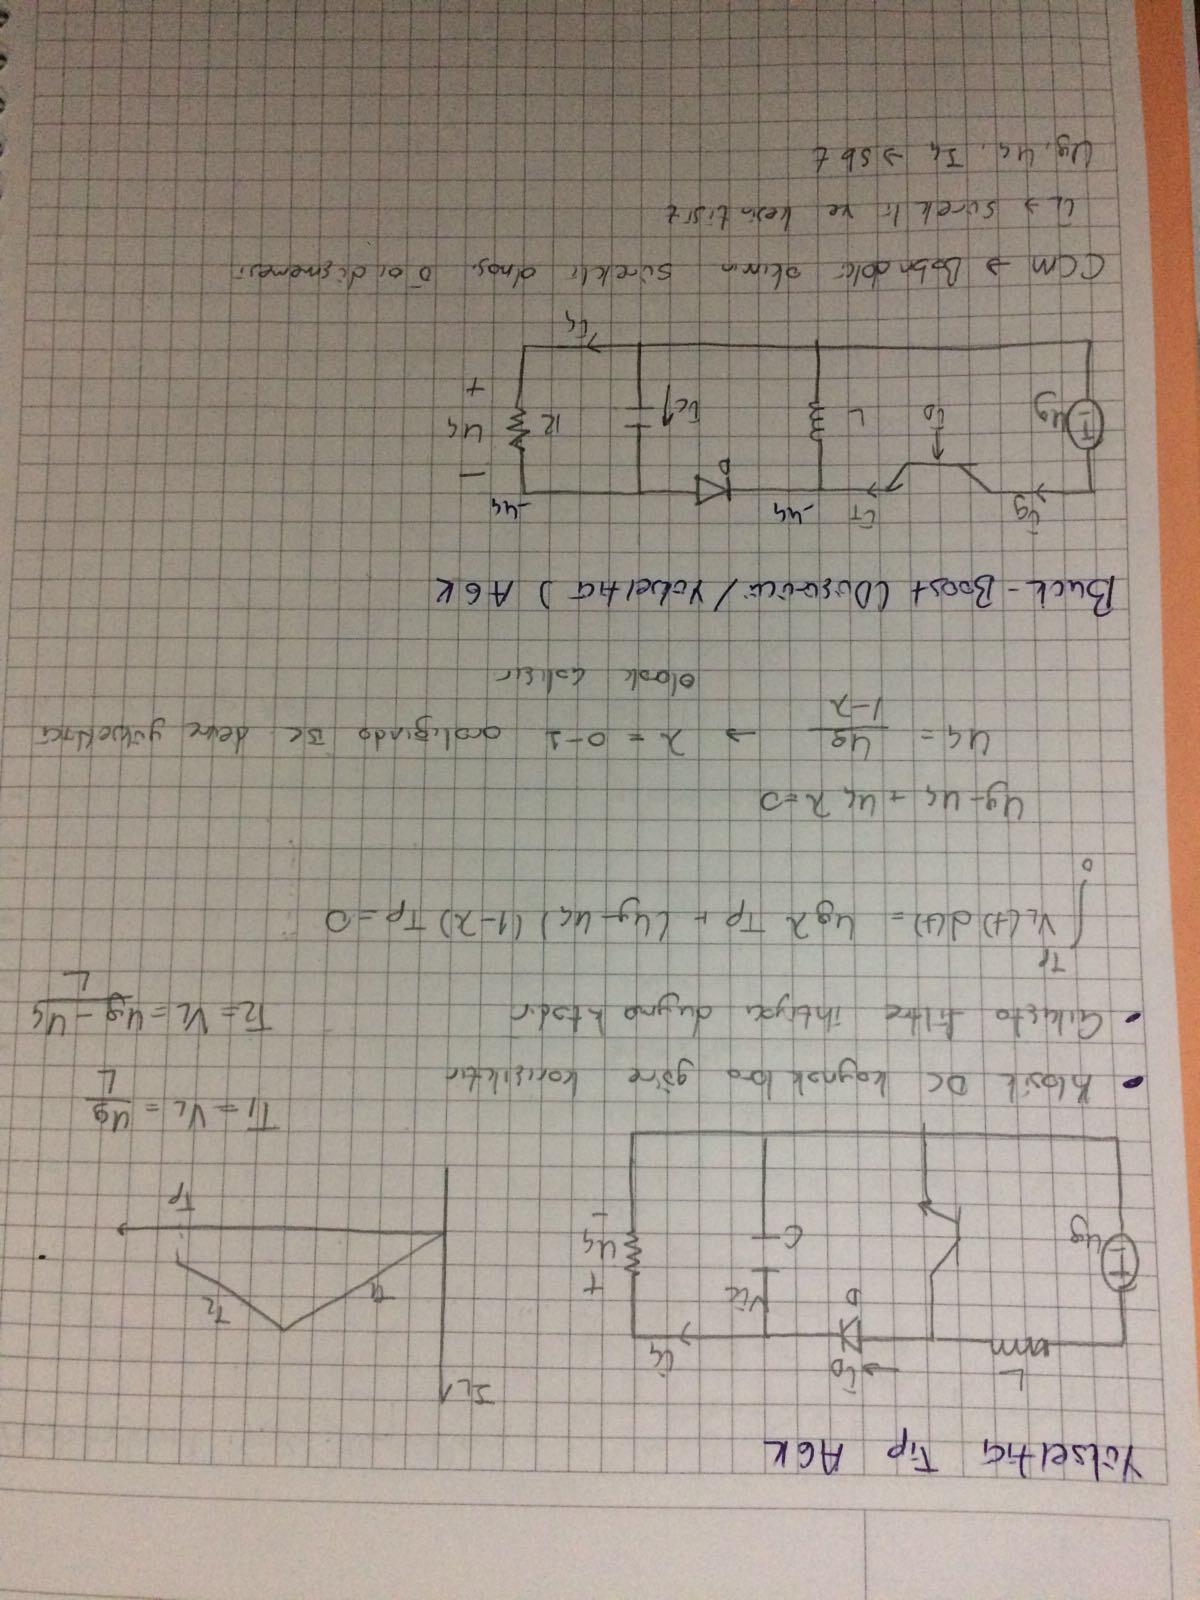 Yükseltici Tip AGK
L
iD
iç
D
iC
C
Ug
+
Uç
-
IL
T1
T2
Tp
T1 = VL = Ug / L
• Klasik DC kaynaklara göre karışıktır
• Çıkışta filtre ihtiyacı duymaktadır
T2 = VL = Ug - Uç / L
∫0^Tp VL(t) d(t) = Ug λ Tp + (Ug - Uç) (1-λ) Tp = 0
Ug - Uç + Uç λ = 0
Uç = Ug / 1-λ → λ = 0-1 aralığında ise devre yükseltici
olarak çalışır
Buck-Boost (Düşürücü / Yükseltici) AGK
ig
iT
-Uç
-Uç
D
Ug
iD
L
iC
R
-
Uç
+
iç
CCM → Bobindeki akımın sürekli olması 0'a düşmemesi
iL → sürekli ve kesintisiz
Ug, Uç, Iç → sbt